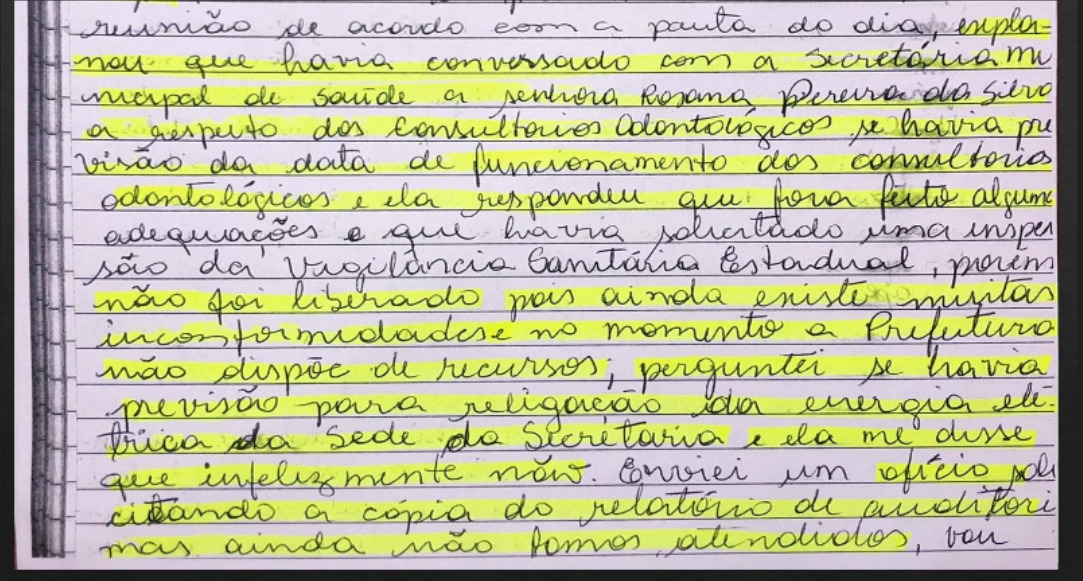 reunião de acordo com a pauta do dia, expla-
nou que havia conversado com a Secretária Mu
nicipal de saúde a senhora Rosana Pereira da Silva
a respeito dos Consultorios Odontológicos se havia pre
visão da data de funcionamento dos consultorios
odontológicos e ela respondeu que fora feito algumas
adequações e que havia solicitado uma inspe
são da Vigilância Sanitária Estadual, porém
não foi liberado pois ainda existe muitas
inconformidades e no momento a Prefeitura
não dispõe de recursos; perguntei se havia
previsão para religação da energia elé-
trica da Sede da Secretaria e ela me disse
que infelizmente não. Enviei um ofício soli
citando a cópia do relatório de auditori
mas ainda não fomos atendidos, vou